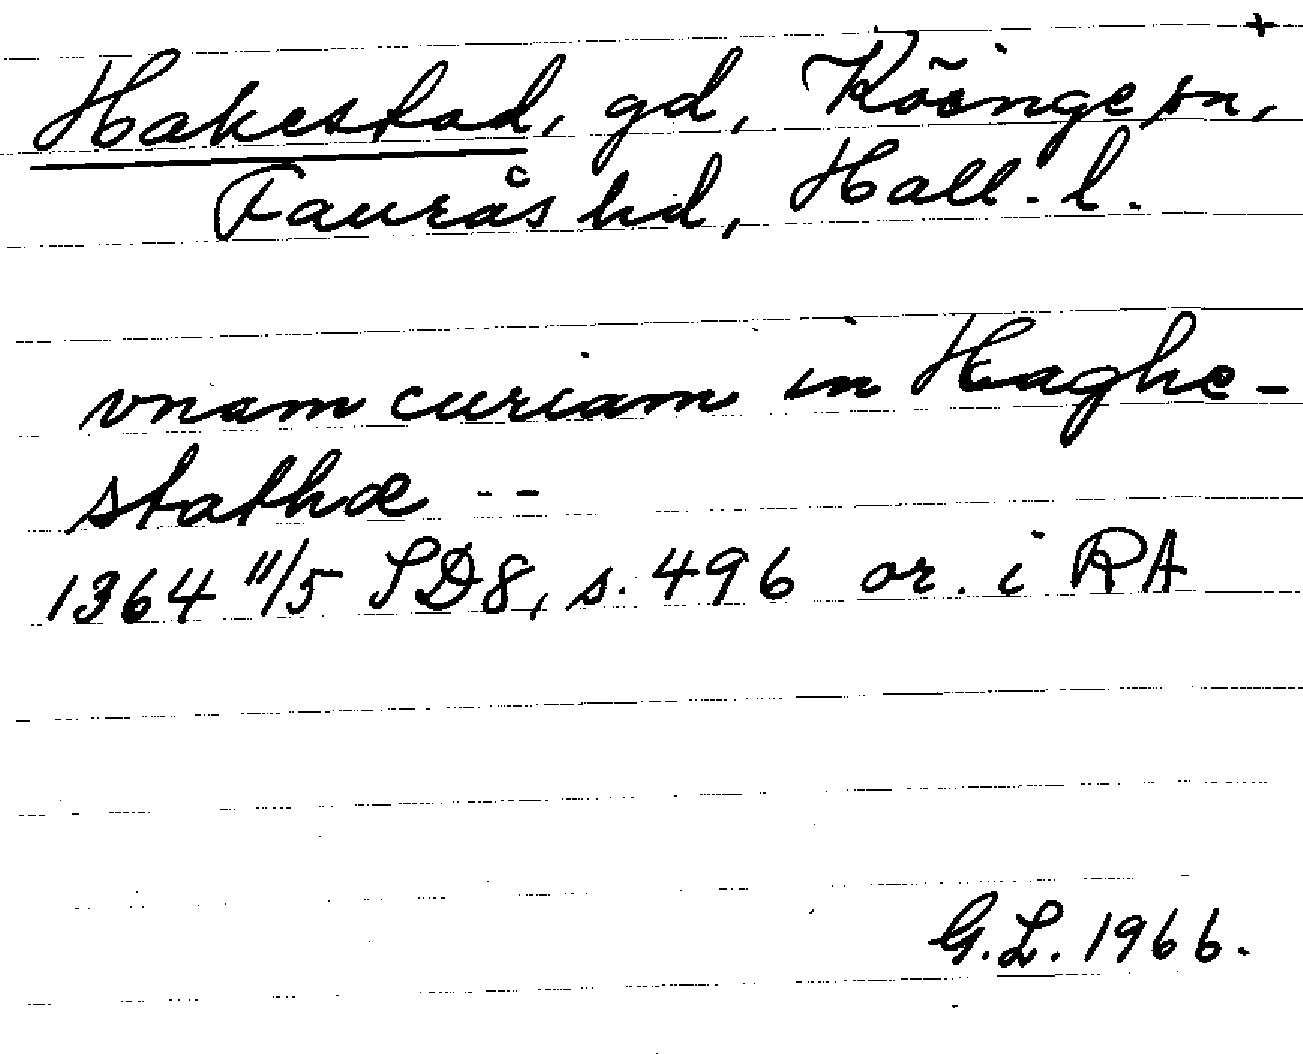 +
Hakestad, gd, Köinge sn,
Faurås hd, Hall. l.
vnam curiam in Haghe-
stathæ --
1364 11/5 SD8, s. 496 or. i RA
G.L. 1966.